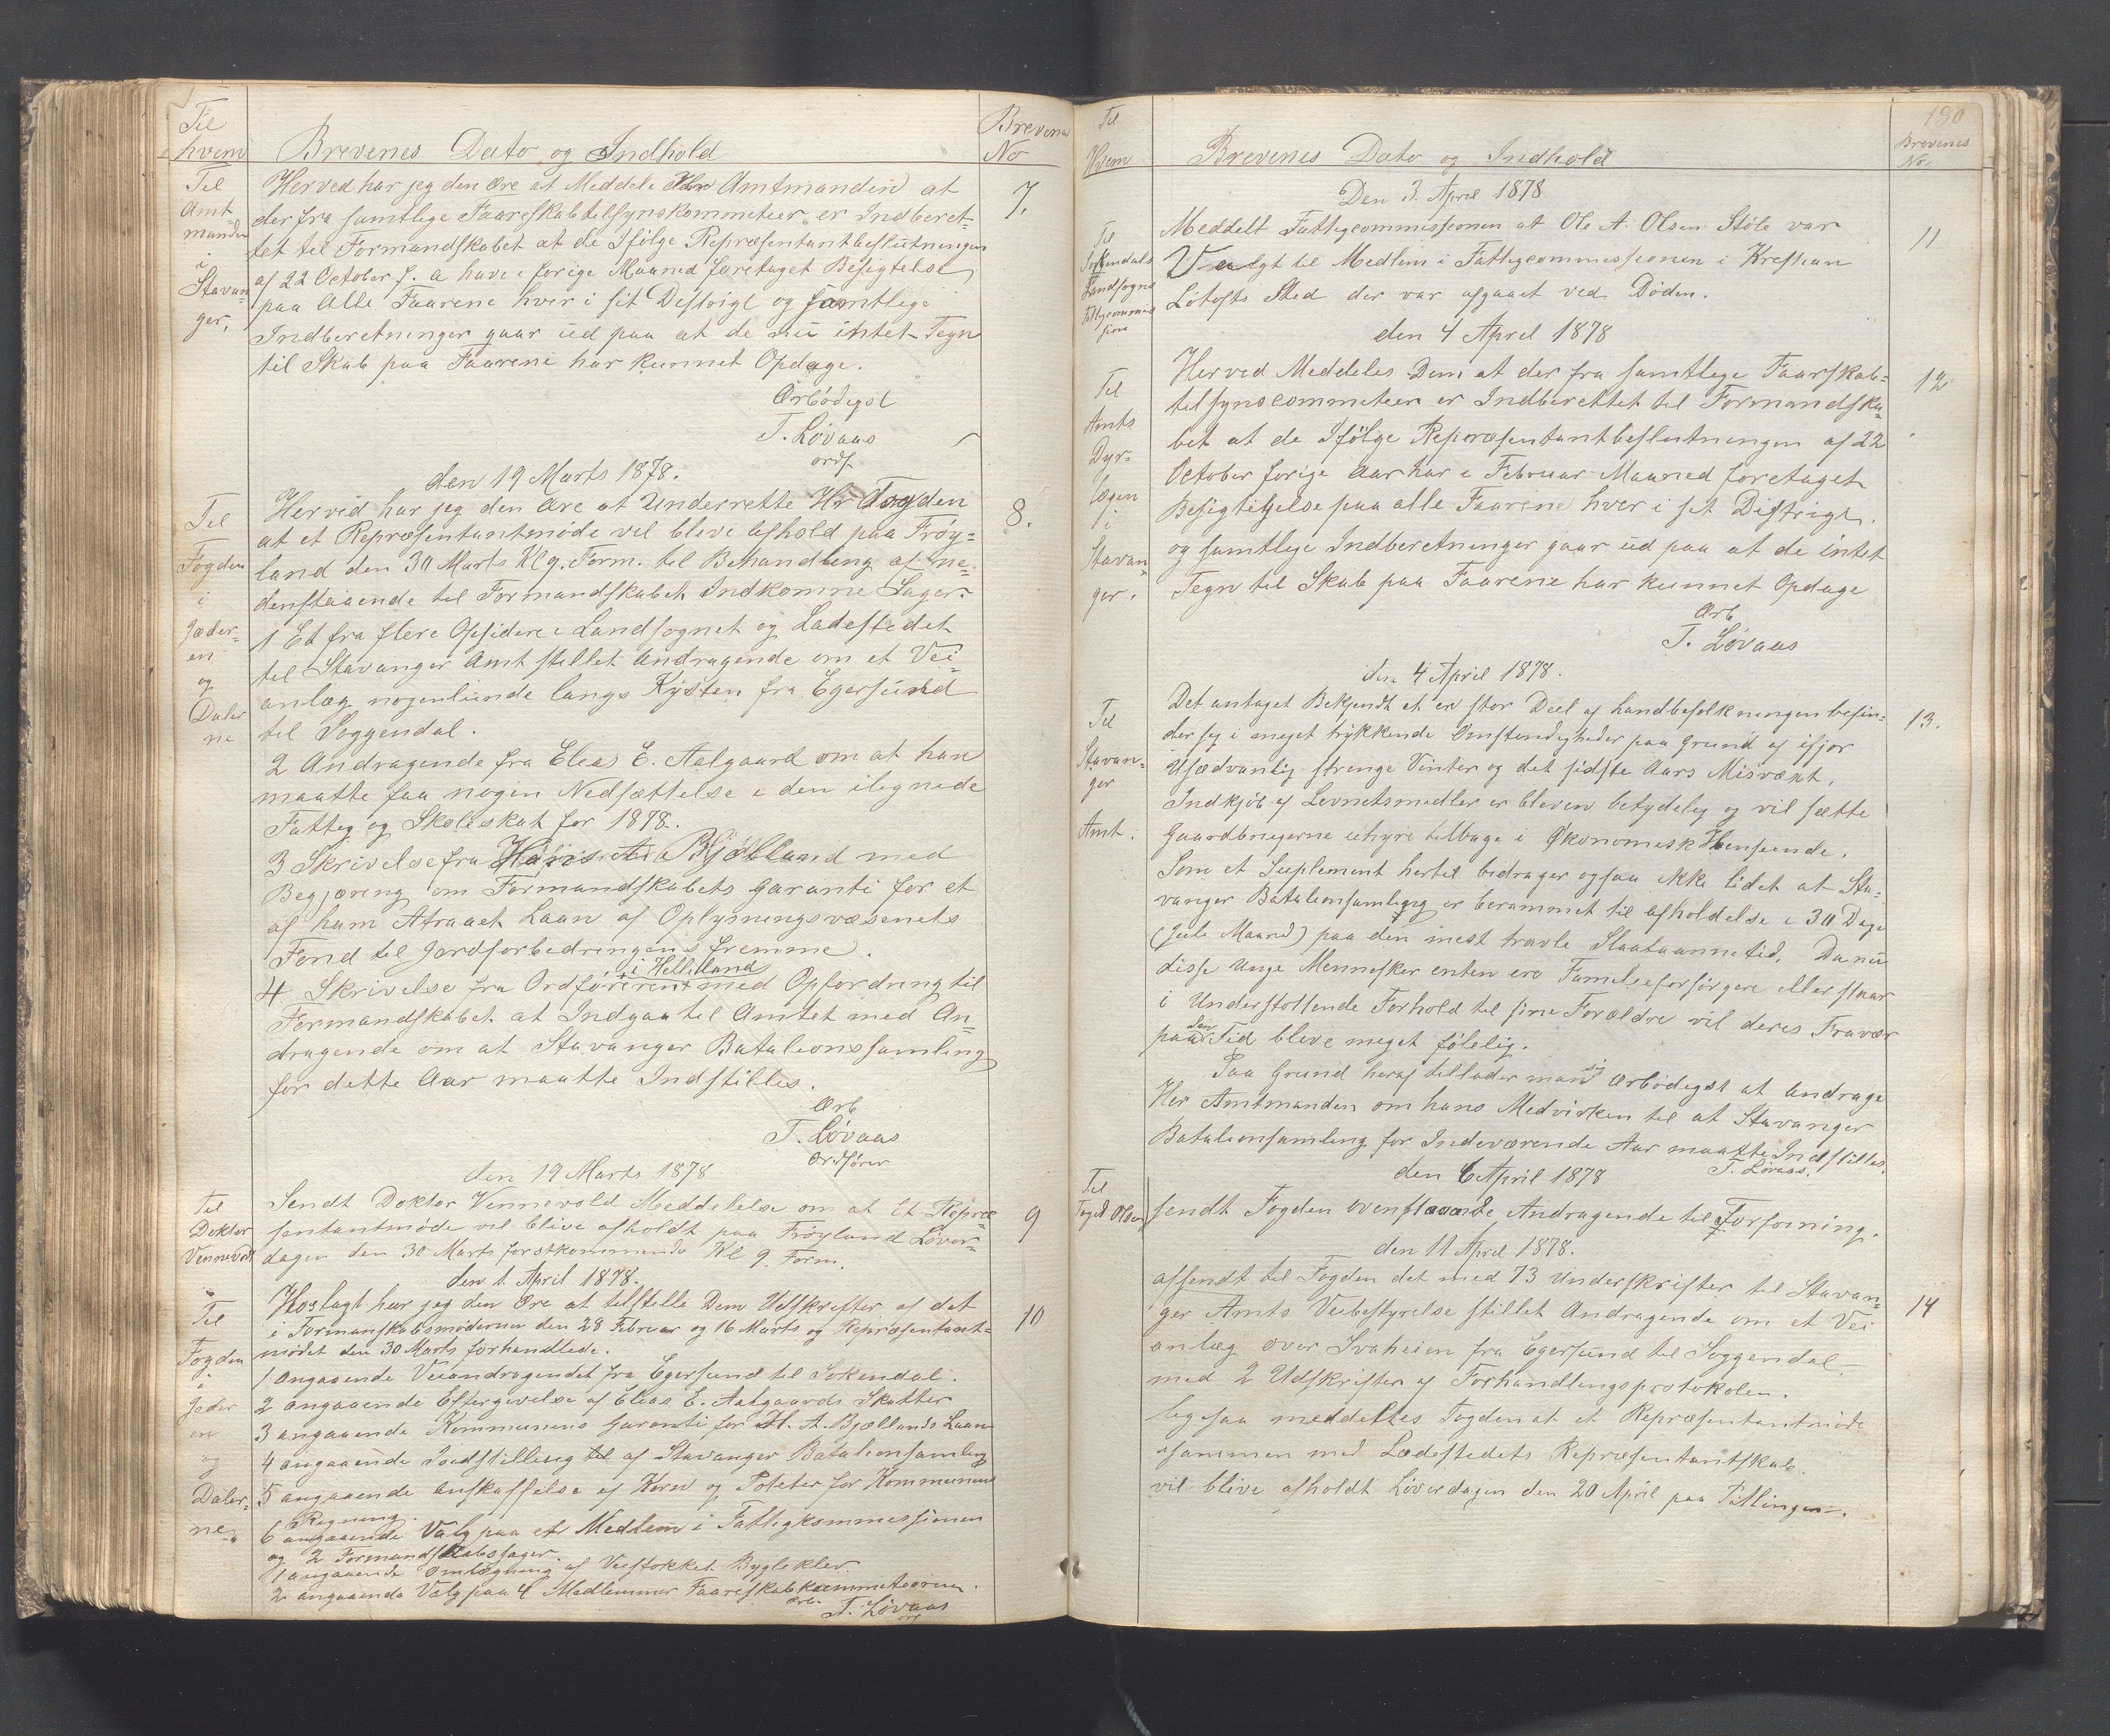 Til
hvem
Brevenes Dato og Indhold
Brevenes
No
Til
Amt
manden
i
Stavan-
ger,
Herved har jeg den Ære at Meddele Hr Amtmanden at
7.
der fra samtlige Faareskabtilsynskommiteer er Indberet-
tet til Formandskabet at de Ifölge Repræsentantbeslutningen
af 22 October f. a have i forige Maaned foretaget Besigtelse
paa Alle Faarene hver i sit Destrigt og samtlige
Indberetninger gaar ud paa at de nu intet Tegn
til Skab paa Faarene har kunnet Opdage.
Ærbödigst
T. Løvaas
ordf.
den 19 Marts 1878.
Til
Fogden
i
Jæder-
en
og
Daler
ne
Herved har jeg den Ære at Underrette Hr Fogden
8.
at et Repræsentantmöde vil blive afhold paa Fröy-
land den 30 Marts Kl 9. Form. til Behandling af ne-
denstaaende til Formandskabet Indkomne Sager:
1 Et fra flere Opsidere i Landsognet og Ladestedet
til Stavanger Amt stillet Andragende om et Vei-
anlæg nogenlunde langs Kysten fra Egersund
til Soggendal.
2 Andragende fra Eleas E. Aalgaard om at han
maatte faa nogen Nedsættelse i den ilignede
Fattig og Skoleskat for 1878.
3 Skrivelse fra Bjölland med
Begjæring om Formandskabets Garanti for et
af ham Atraaet Laan af Oplysningsvæsenets
Fond til Jordforbedringens fremme.
i Helleland
4. Skrivelse fra Ordföreren med Opfordring til
Formandskabet at Indgaa til Amtet med An-
dragende om at Stavanger Batalionssamling
for dette Aar maatte Indstilles.
Ærb
T. Løvaas
Ordfører
den 19 Marts 1878.
Til
Doktor
Vennevold
Sendt Doktor Vennevold Meddelelse om at Et Repræ
9
sentantmöde vil blive afholdt paa Fröyland Löver-
dagen den 30 Marts förstkommende Kl 9. Form.
den 1. April 1878.
Til
Fogden
i
Jeder
en
og
Daler-
ne
Hoslagt har jeg den Ære at tilstille Dem Udskrifter af det
10
i Formanskabsmöderne den 28 Februar og 16 Marts og Repræsentant-
mödet den 30 Marts forhandlede.
1 angaaende Veiandragendet fra Egersund til Sokendal.
2 angaaende Eftergivelse af Eleas E. Aalgaards Skatter
3 angaaende Kommunens Garanti for H. A. Bjøllands Laan
4 angaaende Indstilling til af Stavanger Batalionsamling
5 angaaende anskaffelse af Korn og Poteter for Kommunens
Regning.
6 angaaende Valg paa et Medlem i Fattigkommessionen
og 2 Formandskabssager
1 angaaende Omlægning af Veistokket Bygleklev.
2 angaaende Valg paa 4 Medlemmer Faareskabkummiteerne.
Ærb.
T. Løvaas
190
Til
Hvem
Brevenes Dato og Indhold
Brevenes
No.
Den 3. April 1878
Til
Sokendals
Landsogns
Fattigcommis
sion
Meddelt Fattigcommissionen at Ole A. Olsen Stöle var
11
Valgt til Medlem i Fattigcommessionen i Krestian
Lötofts Sted der var afgaaet ved Döden.
den 4 April 1878
Til
Amts
Dyr-
lægen
i
Stavan-
ger.
Herved Meddeles Dem at der fra samtlige Faarskab-
12
tilsynscommiteer er Indberettet til Formandska-
bet at de Ifölge Repræsentantbeslutningen af 22
October forige Aar har i Februar Maaned foretaget
Besigtigelse paa alle Faarene hver i sit Distrigt.
og samtlige Indberetninger gaar ud paa at de intet
Tegn til Skab paa Faarene har kunnet Opdage
Ærb
T. Løvaas
den 4 April 1878.
Til
Stavan-
ger
Amt.
Det antaget Bekjendt at en stor Deel af Landbefolkningen befin-
13.
der sig i meget trykkende Omstendigheder paa Grund af ifjor
Usædvanlig strenge Vinter og det sidste Aars Misvæxt.
Indkjöb af Levnetsmidler er bleven betydelig og vil sætte
Gaardbrugerne uhyre tilbage i Økonomisk Henseende.
Som et Suplement hertil bedrager ogsaa ikke lidet at Sta-
vanger Batalionsamling er berammet til afholdelse i 30 Dage
(Jule Maaned) paa den mest travle Slaataannetid. Da nu
disse Unge Mennesker enten ere Familieforsörgere eller staar
i Understottende Forhold til sine Forældre vil deres Fravær
den
paa Tid bleve meget fölelig.
sig
Paa Grund heraf tillader man Ærbödigst at andrage
Her Amtmanden om hans Medvirken til at Stavanger
Batalionsamling for Indeværende Aar maatte Indstilles.
T. Løvaas.
den 6 April 1878
Til
Foged Olsen
sendt Fogden ovenstaaende Andragende til Forsoining.
den 11 April 1878.
afsendt til Fogden det med 73 Underskrifter til Stavan-
14
ger Amts Veibestyrelse stillet Andragende om et Vei
anlæg over Svaheien fra Egersund til Soggendal
med 2 Udskrifter af Forhandlingsprotokolen.
ligesaa meddeltes Fogden at et Repræsentantmöde
sammen med Ladestedets Repræsentantskab.
vil blive afholdt Löverdagen den 20 April paa Titlingen.